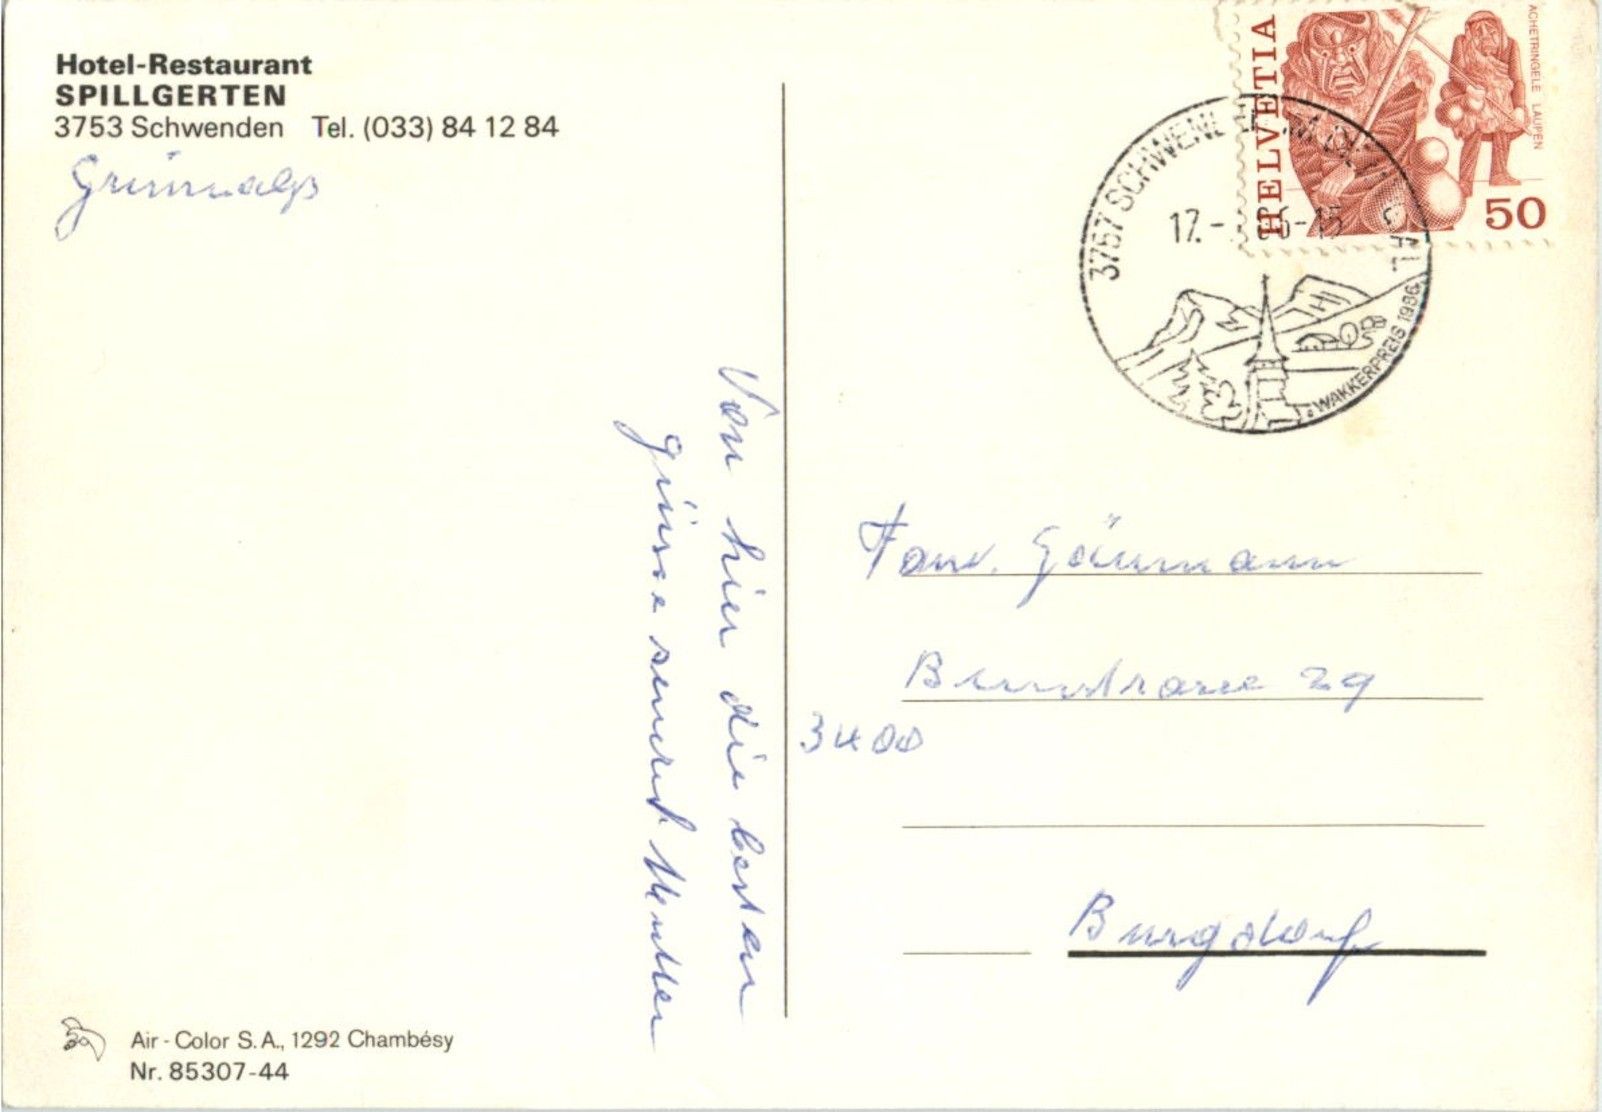 Hotel-Restaurant
SPILLGERTEN
3753 Schwenden Tel. (033) 84 12 84
Grimmialp
Von hier die besten
grüsse sendet Mutter
Air-Color S.A., 1292 Chambésy
Nr. 85307-44
HELVETIA
ACHETRINGELE LAUPEN
50
3757 SCHWENDEN
17.- 86-15
WAKKERPREIS 1986
Fam.
29
3400
Burgdorf